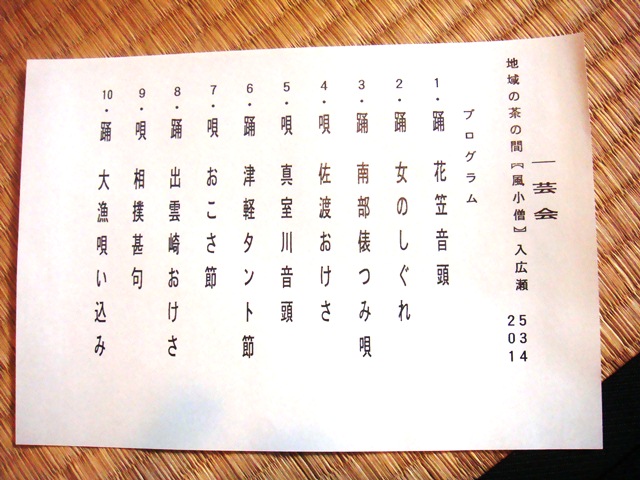 一芸会
地域の茶の間『風小僧』入広瀬 25 03 14
プログラム
1・踊 花笠音頭
2・踊 女のしぐれ
3・踊 南部俵つみ唄
4・唄 佐渡おけさ
5・唄 真室川音頭
6・踊 津軽タント節
7・唄 おこさ節
8・踊 出雲崎おけさ
9・唄 相撲甚句
10・踊 大漁唄い込み